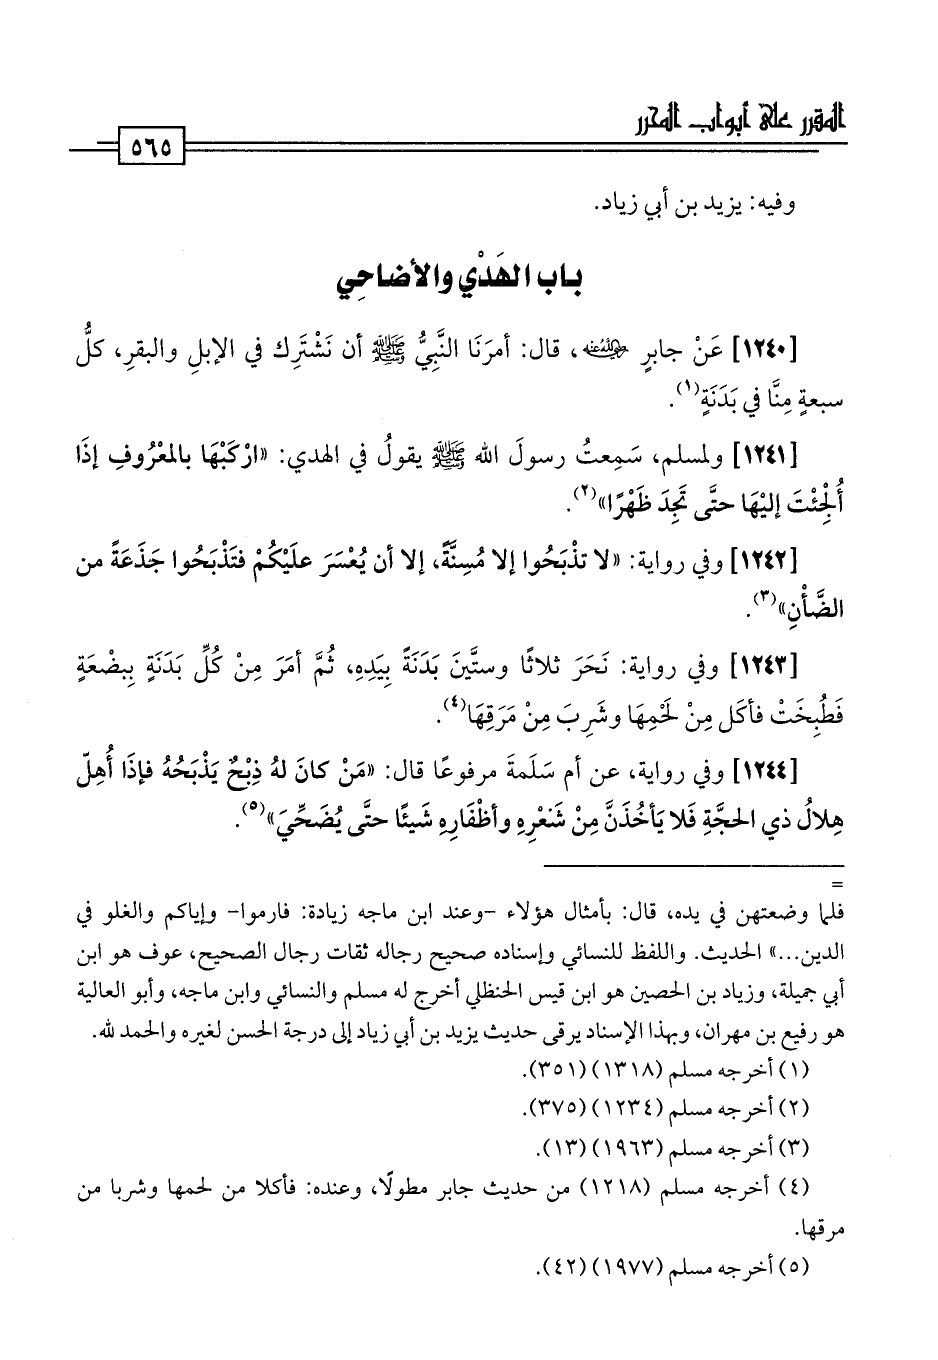 المقرر على أبواب المحرر
٥٦٥
وفيه: يزيد بن أبي زياد.
باب الهَدْي والأضاحِي
[١٢٤٠] عَنْ جابرٍ رضي الله عنه، قال: أمرَنَا النَّبِيُّ ﷺ أن نَشْتَرِك في الإبلِ والبقرِ، كلُّ
سبعةٍ مِنَّا في بَدَنَةٍ(١).
[١٢٤١] ولمسلم، سَمِعتُ رسولَ الله ﷺ يقولُ في الهدي: «ارْكَبْهَا بالمَعْرُوفِ إذَا
أُلْجِئْتَ إليْهَا حتَّى تَجِدَ ظَهْرًا»(٢).
[١٢٤٢] وفي رواية: «لا تذْبَحُوا إلا مُسِنَّةً، إلا أن يُعْسَرَ عليْكُمْ فتَذْبَحُوا جَذَعَةً من
الضَّأْنِ»(٣).
[١٢٤٣] وفي رواية: نَحَرَ ثلاثًا وستَّينَ بَدَنَةً بِيَدِهِ، ثُمَّ أمَرَ مِنْ كُلِّ بَدَنَةٍ بِبِضْعَةٍ
فَطُبِخَتْ فأكَل مِنْ لَحْمِهَا وشَرِبَ مِنْ مَرَقِهَا(٤).
[١٢٤٤] وفي رواية، عن أم سَلَمةَ مرفوعًا قال: «مَنْ كانَ لهُ ذِبْحٌ يَذْبَحُهُ فإذَا أُهِلّ
هِلالُ ذي الحجَّةِ فَلا يَأخُذَنَّ مِنْ شَعْرِهِ وأظْفَارِهِ شَيئًا حتَّى يُضَحِّيَ»(٥).
=
فلما وضعتهن في يده، قال: بأمثال هؤلاء -وعند ابن ماجه زيادة: فارموا- وإياكم والغلو في
الدين...» الحديث. واللفظ للنسائي وإسناده صحيح رجاله ثقات رجال الصحيح، عوف هو ابن
أبي جميلة، وزياد بن الحصين هو ابن قيس الحنظلي أخرج له مسلم والنسائي وابن ماجه، وأبو العالية
هو رفيع بن مهران، وبهذا الإسناد يرقى حديث يزيد بن أبي زياد إلى درجة الحسن لغيره والحمد لله.
(١) أخرجه مسلم (١٣١٨) (٣٥١).
(٢) أخرجه مسلم (١٢٣٤) (٣٧٥).
(٣) أخرجه مسلم (١٩٦٣) (١٣).
(٤) أخرجه مسلم (١٢١٨) من حديث جابر مطولًا، وعنده: فأكلا من لحمها وشربا من
مرقها.
(٥) أخرجه مسلم (١٩٧٧) (٤٢).